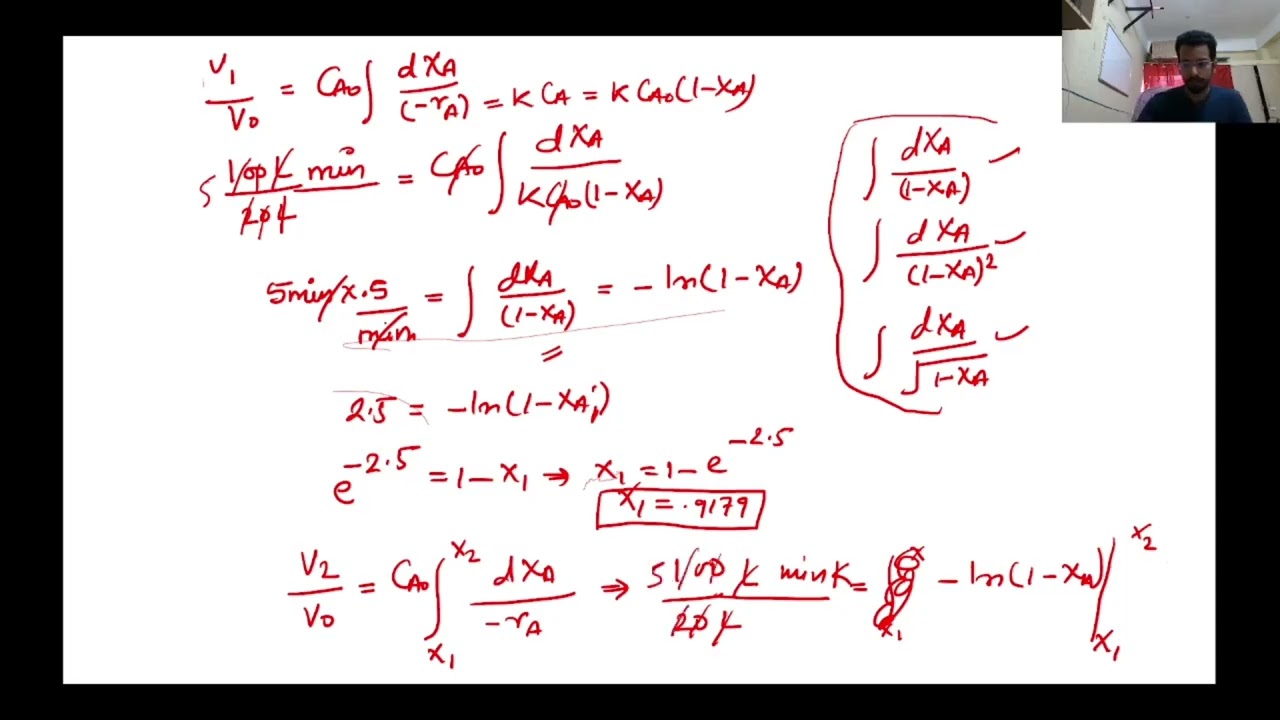 V₁/V₀ = C_A₀ ∫ dX_A/(-r_A) = K C_A = K C_A₀ (1-X_A)
5 100 L min/20 L = C_A₀ ∫ dX_A/(K C_A₀ (1-X_A))
5 min x .5/min = ∫ dX_A/(1-X_A) = - ln(1-X_A)
=
2.5 = -ln(1-X_A,₁)
e^-2.5 = 1-X₁ → X₁ = 1-e^-2.5
X₁ = .9179
V₂/V₀ = C_A₀ ∫_X₁^X₂ dX_A/-r_A ⇒ 5 100 L min K/20 L = X₁ - ln(1-X_A) |_X₁^X₂
∫ dX_A/(1-X_A) ✓
∫ dX_A/(1-X_A)² ✓
∫ dX_A/√1-X_A ✓